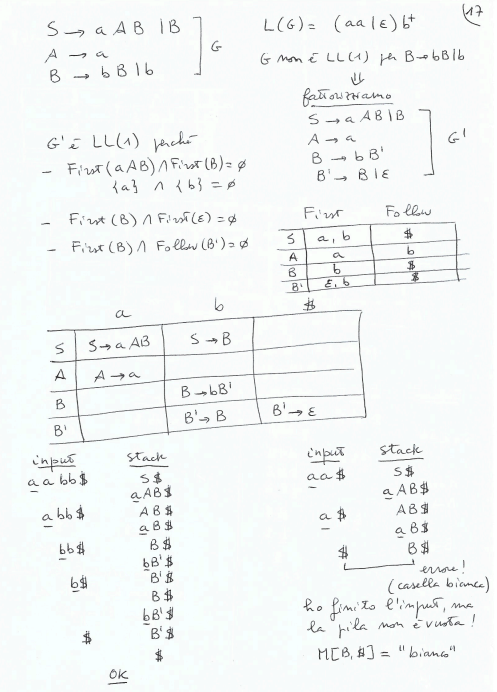 17
S → a A B | B
A → a
B → b B | b
G
L(G) = (aa|ε) b⁺
G non è LL(1) per B → bB|b
⇓
fattorizziamo
S → a AB | B
A → a
B → b B'
B' → B | ε
G'
G' è LL(1) perché
- First(aAB) ∩ First(B) = ∅
{a} ∩ {b} = ∅
- First(B) ∩ First(ε) = ∅
- First(B) ∩ Follow(B') = ∅
First Follow
S a, b $
A a b
B b $
B' ε, b $
a b $
S S → a AB S → B
A A → a
B B → bB'
B' B' → B B' → ε
input stack
aabb$ S$
aAB$
abb$ AB$
aB$
bb$ B$
bB'$
b$ B'$
B$
bB'$
$ B'$
$
OK
input stack
aa$ S$
aAB$
a$ AB$
aB$
$ B$
errore!
(casella bianca)
ho finito l'input, ma
la pila non è vuota!
M[B,$] = "bianco"